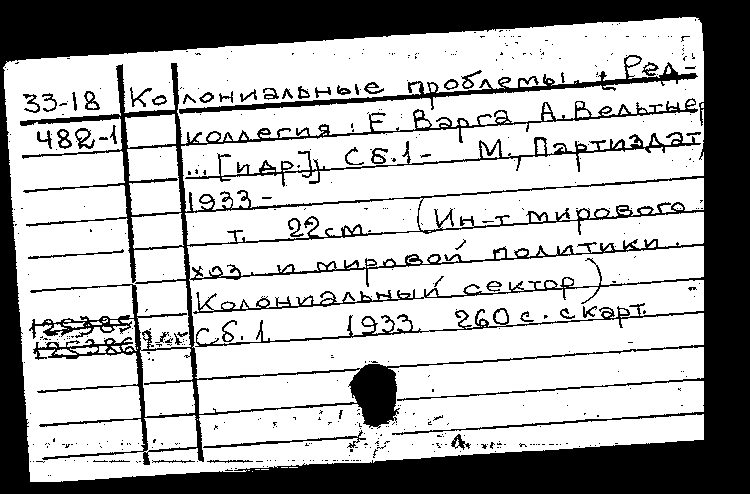 33-18 Колониальные проблемы. [Ред-
482-1 коллегия: Е. Варга, А. Вельтнер
... [и др.]]. Сб.1- М., Партиздат,
1933-
т. 22см. (Ин-т мирового
хоз. и мировой политики.
Колониальный сектор).
125385
125386 Сб.1 1933 260 с. с карт.